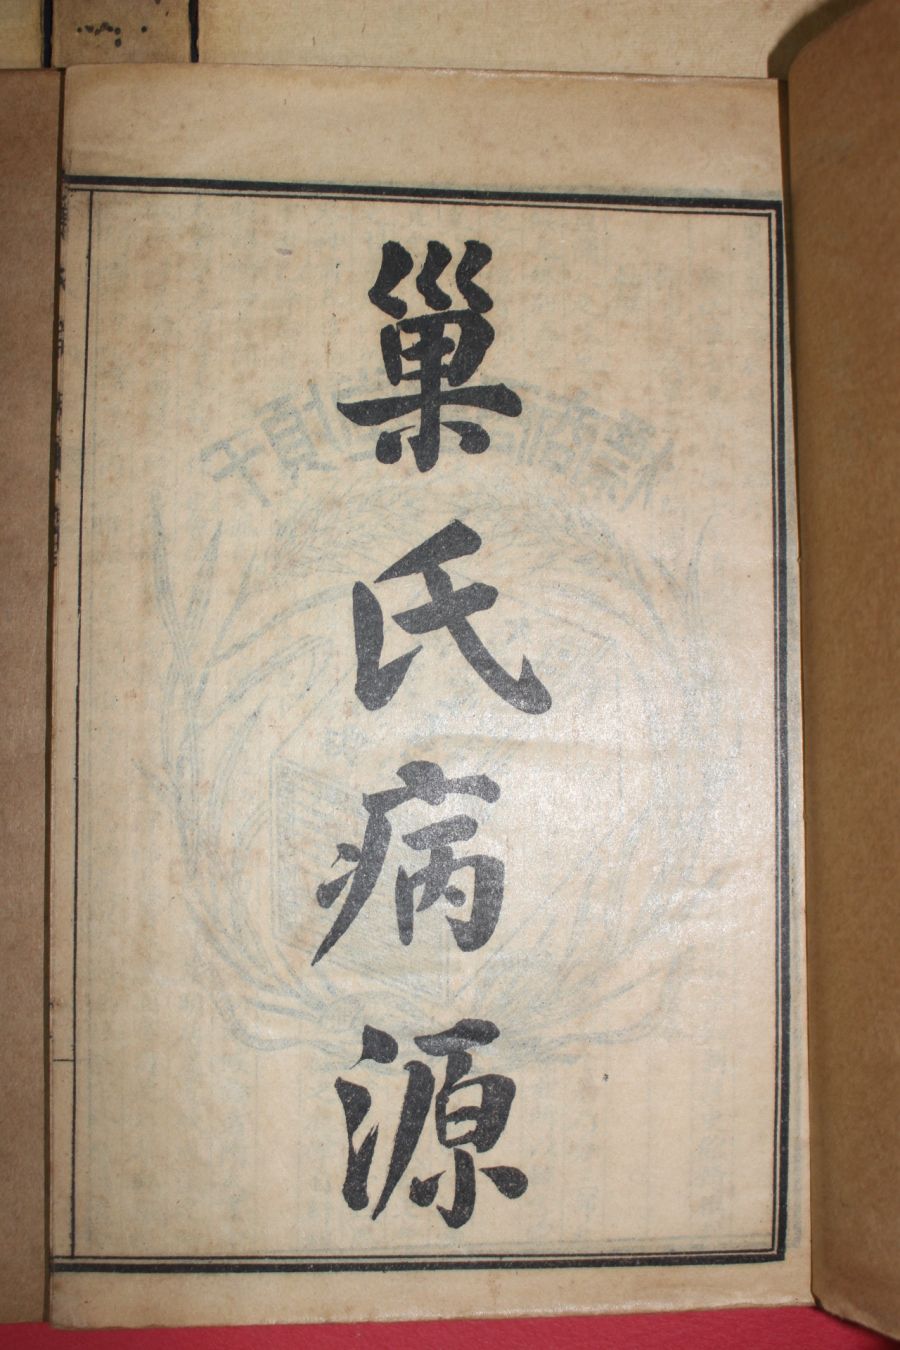 巢氏病源